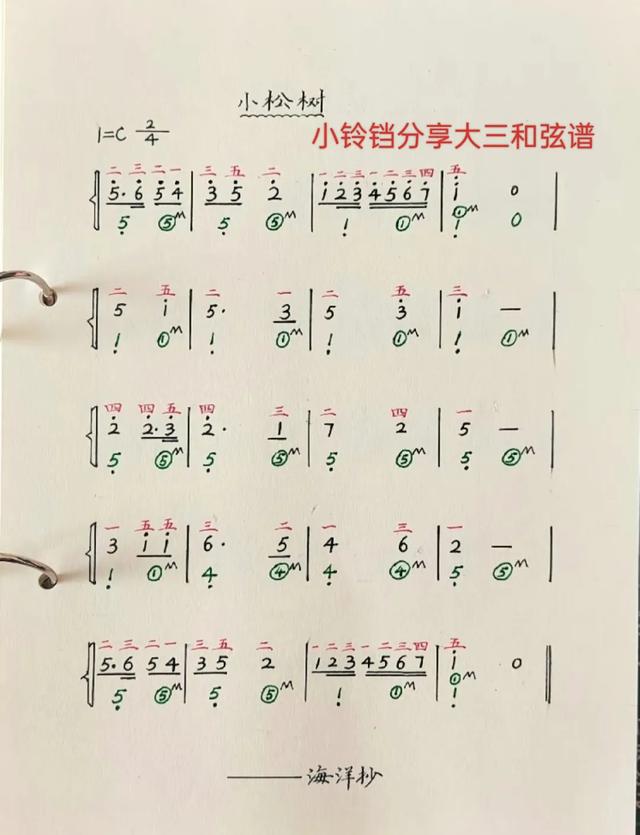 小松树
1=C 2/4
小铃铛分享大三和弦谱
二 三 二 一 三 五 二 一 二 三 一 二 三 四 五
5̇· 6̇ 5̇ 4̇ | 3̇ 5̇ 2̇ | 1̇ 2̇ 3̇ 4̇ 5̇ 6̇ 7̇ | i̇ 0 |
5̣ ⑤M 5̣ ⑤M 1̣ ①M ①M 1̣ 0
二 五 二 一 二 五 三
5 i | 5· 3 | 5 3̇ | i — |
1̣ ①M 1̣ ①M 1̣ ①M 1̣ ①M
四 四 五 四 三 二 四 一
2̇ 2̇· 3̇ | 2̇· 1 | 7 2 | 5 — |
5̣ ⑤M 5̣ ⑤M 5̣ ⑤M 5̣ ⑤M
一 五 五 三 二 一 三 一
3 i i | 6· 5 | 4 6 | 2 — |
1̣ ①M 4̣ ④M 4̣ ④M 5̣ ⑤M
二 三 二 一 三 五 二 一 二 三 一 二 三 四 五
5· 6 5 4 | 3 5 2 | 1 2 3 4 5 6 7 | i 0 ‖
5̣ ⑤M 5̣ ⑤M 1̣ ①M ①M 1̣
——海洋抄